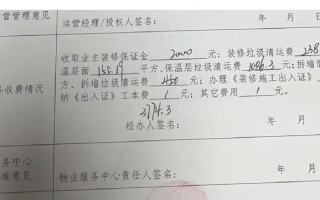 营管理意见
运营经理/授权人签名： 年 月 日
收取业主装修保证金 2000 元；装修垃圾清运费 238
温层面 155.19 平方、保温层垃圾清运费 1086.3 元；拆墙面
务收费情况
方、拆墙垃圾清运费 450 元；办理《装修施工出入证》
纳《出入证》工本费 1 元；其它费用 1 元。
3774.3
经办人签名：
年 月
务中心
准意见
物业服务中心责任人签名：
年 月